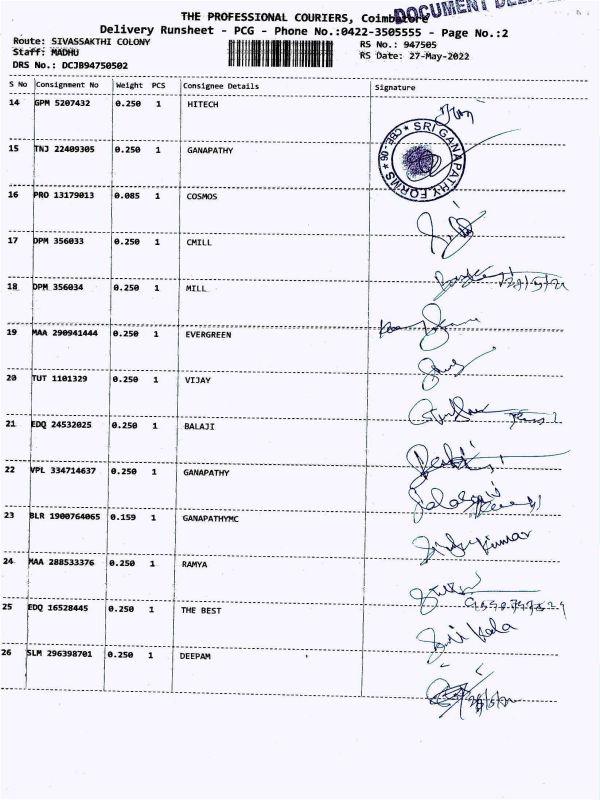 DOCUMENT
THE PROFESSIONAL COURIERS, Coimbatore
Delivery Runsheet - PCG - Phone No.:0422-3505555 - Page No.:2
Route: SIVASSAKTHI COLONY RS No.: 947505
Staff: MADHU RS Date: 27-May-2022
DRS No.: DCJB94750502
S No Consignment No Weight PCS Consignee Details Signature
14 GPM 5207432 0.250 1 HITECH
15 TNJ 22409305 0.250 1 GANAPATHY
SRI GANAPATHY FORMS * CBE-06 *
16 PRO 13179013 0.085 1 COSMOS
17 DPM 356033 0.250 1 CMILL
18 DPM 356034 0.250 1 MILL
19 MAA 290941444 0.250 1 EVERGREEN
20 TUT 1101329 0.250 1 VIJAY
21 EDQ 24532025 0.250 1 BALAJI
22 VPL 334714637 0.250 1 GANAPATHY
23 BLR 1900764065 0.159 1 GANAPATHYMC
24 MAA 288533376 0.250 1 RAMYA
25 EDQ 16528445 0.250 1 THE BEST
26 SLM 296398701 0.250 1 DEEPAM